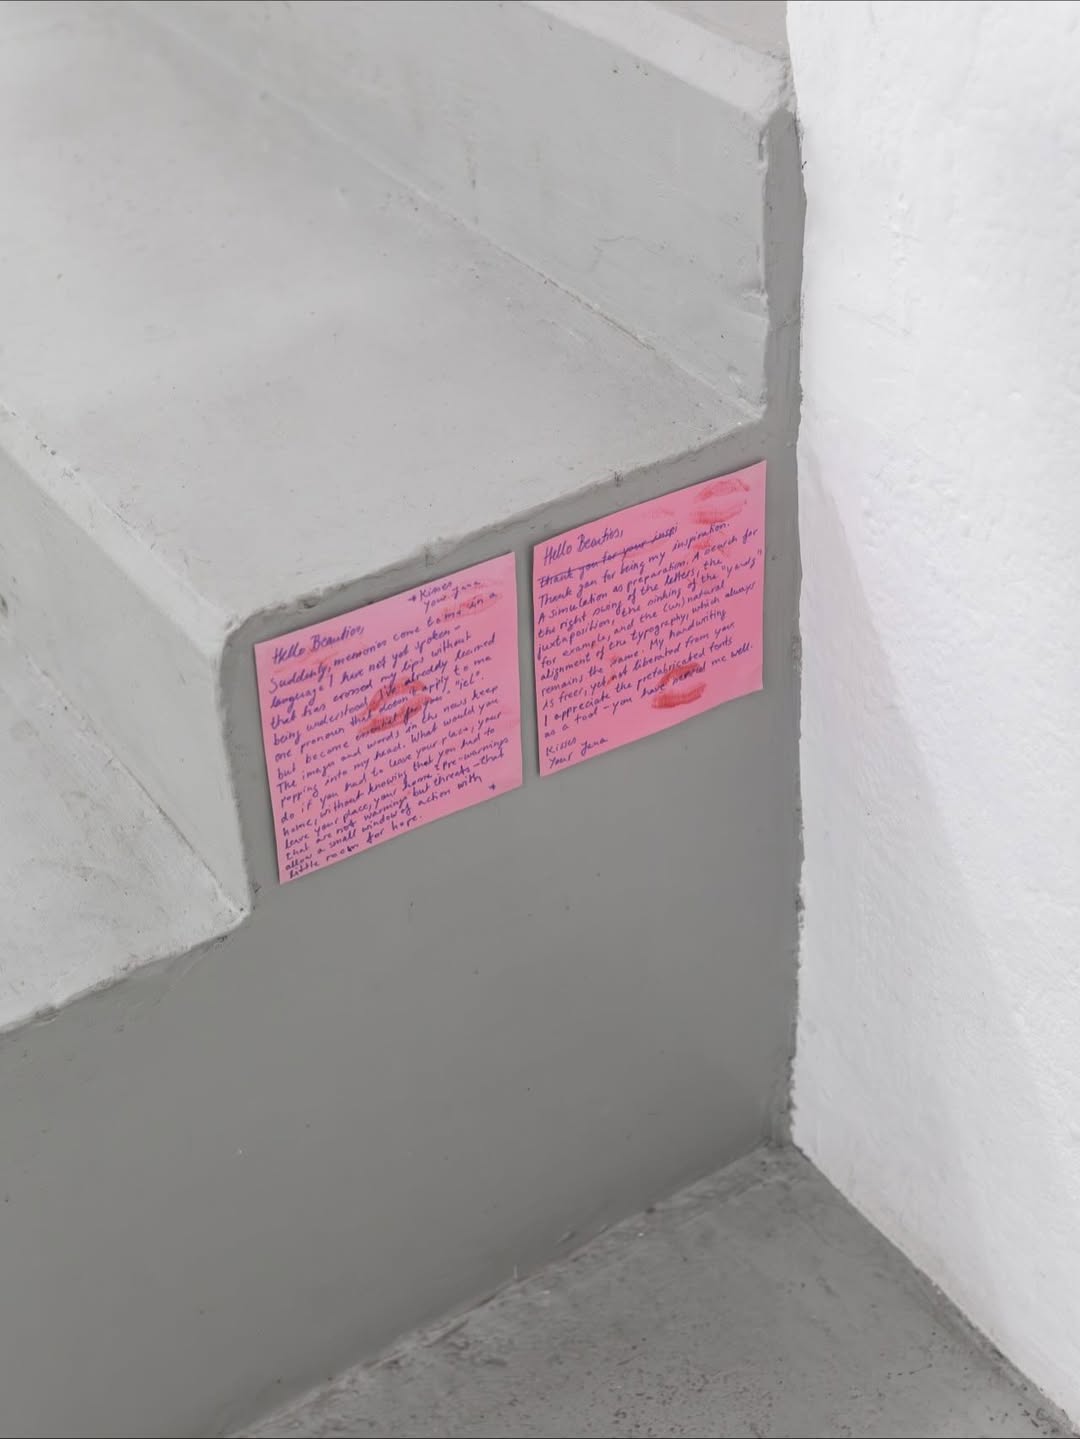 * Kisses
your Jana
Hello Beauties,
Suddenly, memories come to me in a
language I have not yet spoken –
that has crossed my lips without
being understood. I've already learned
one pronoun that doesn't apply to me
but became essential for you. "iel".
The images and words in the news keep
popping into my head. What would you
do if you had to leave your place, your
home, without knowing that you had to
leave your place, your home? Pre-warnings
that are not warnings but threats – that
allow a small window of action with
little room for hope. *
Hello Beauties,
Thank you for your inspi
Thank you for being my inspiration.
A simulation as preparation. A search for
the right swing of the letters, the
juxtaposition, the sinking of the
for example, and the (un)natural
alignment of the typography, which always
remains the same. My handwriting
is freer, yet not liberated from your
I appreciate the prefabricated fonts
as a tool – you have served me well.
Kisses
Your Jana